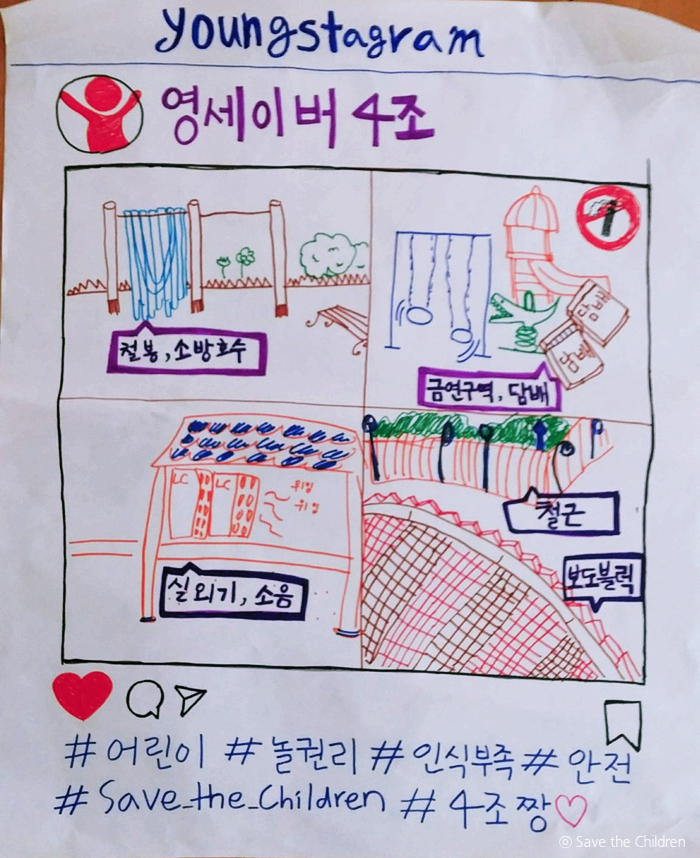 youngstagram
영세이버 4조
철봉, 소방호수
담배
담배
금연구역, 담배
LC LC 위잉
위잉
실외기, 소음
철근
보도블럭
#어린이 #놀권리 #인식부족 #안전
#Save_the_Children #4조짱♡
© Save the Children